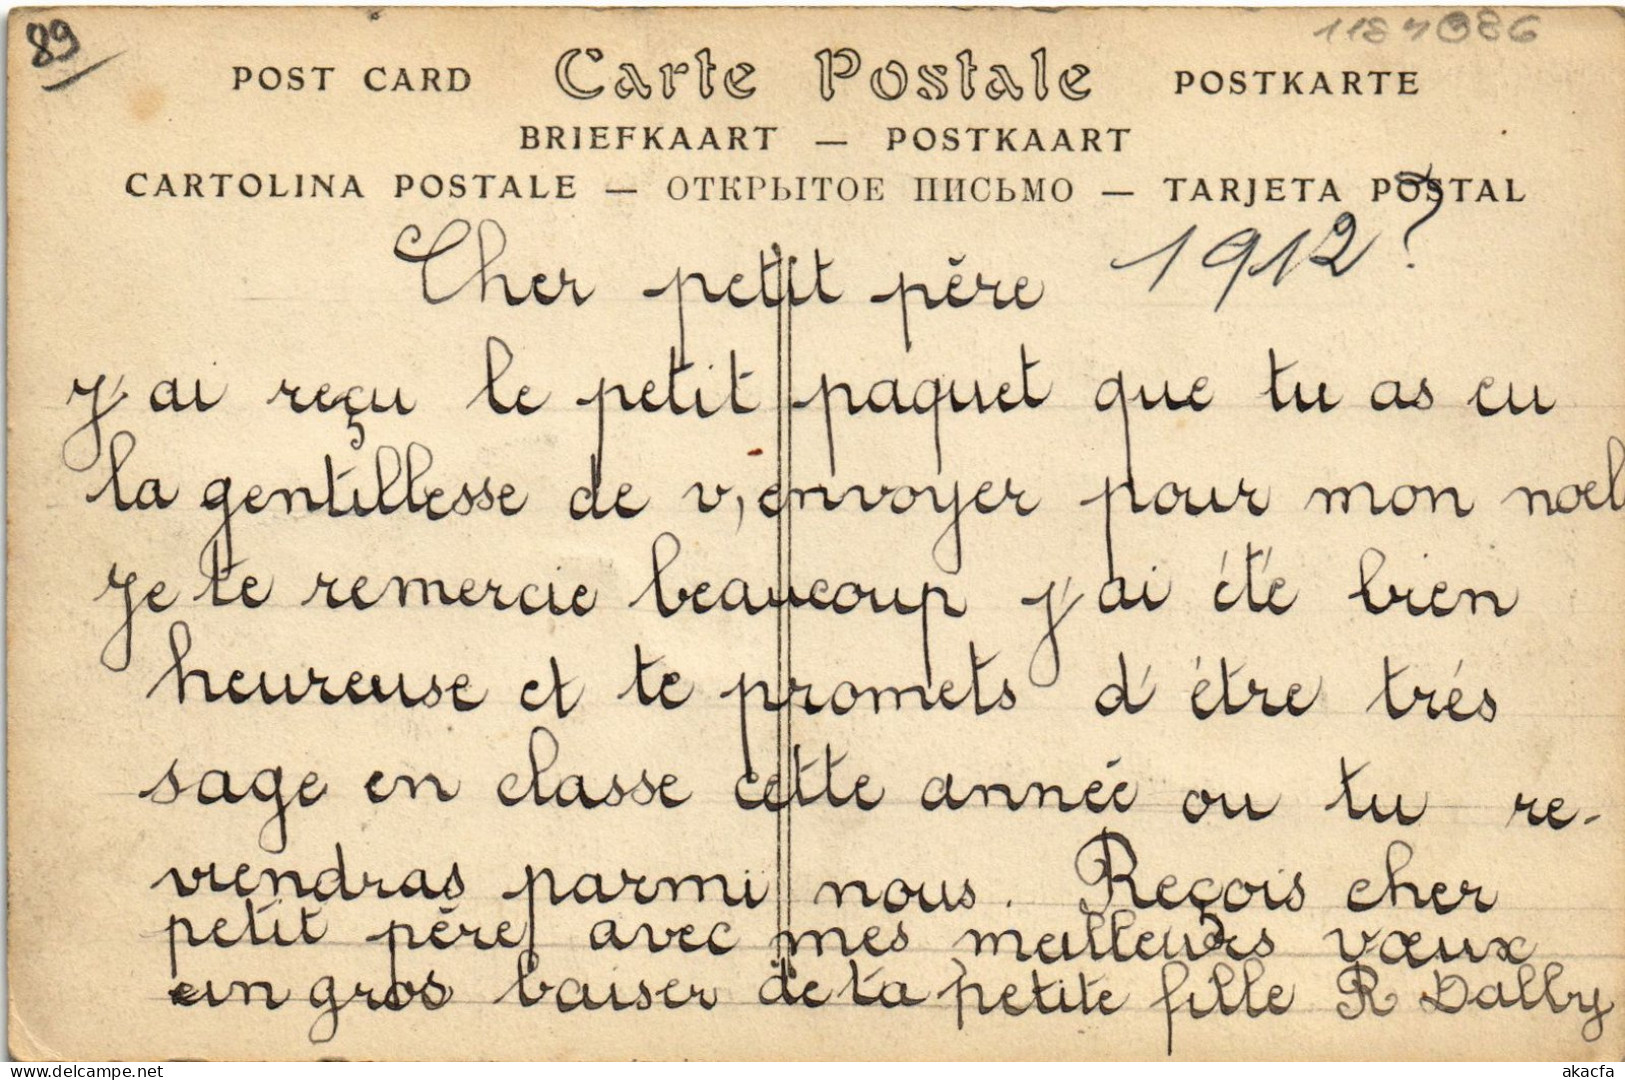 89
1187086
POST CARD Carte Postale POSTKARTE
BRIEFKAART — POSTKAART
CARTOLINA POSTALE — ОТКРЫТОЕ ПИСЬМО — TARJETA POSTAL
1912?
Cher petit père
J'ai reçu le petit paquet que tu as eu
la gentillesse de v,envoyer pour mon noel
Je te remercie beaucoup j'ai été bien
heureuse et te promets d'étre trés
sage en classe cette année ou tu re-
viendras parmi nous. Reçois cher
petit père avec mes meilleurs vœux
un gros baiser de ta petite fille R Dalby
akacfa